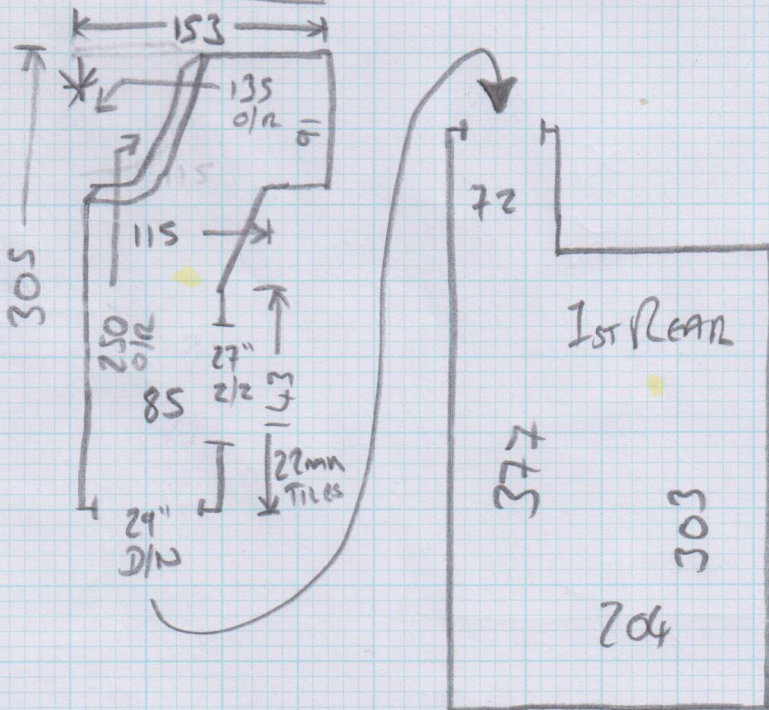 153
305
135
O/R
91
115
115
250
O/R
27"
2/2
143
85
22mm
TILES
29"
D/N
72
1ST REAR
377
303
204